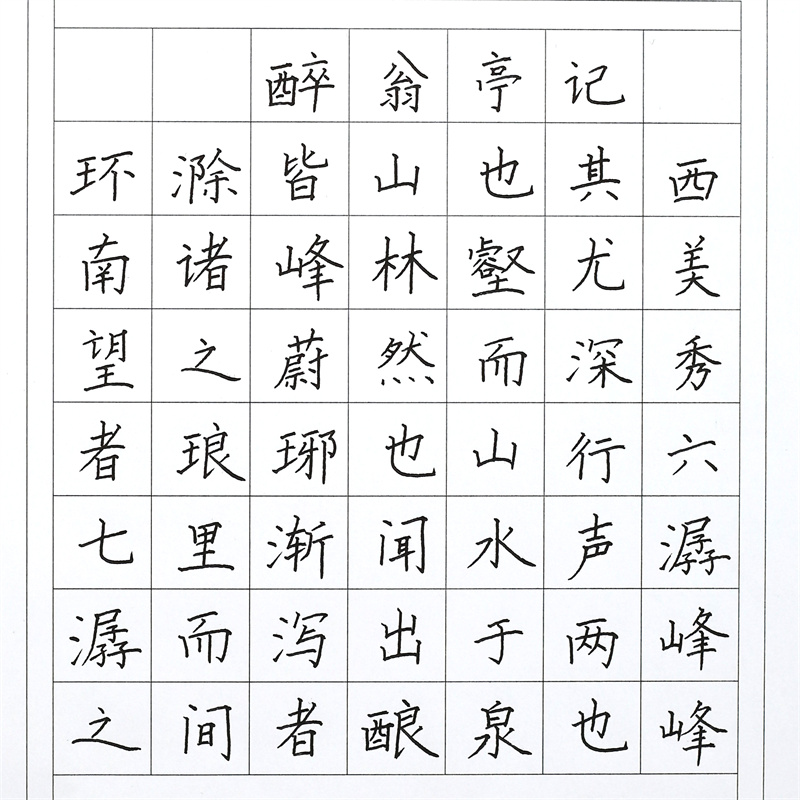 醉翁亭记
环滁皆山也其西
南诸峰林壑尤美
望之蔚然而深秀
者琅琊也山行六
七里渐闻水声潺
潺而泻出于两峰
之间者酿泉也峰